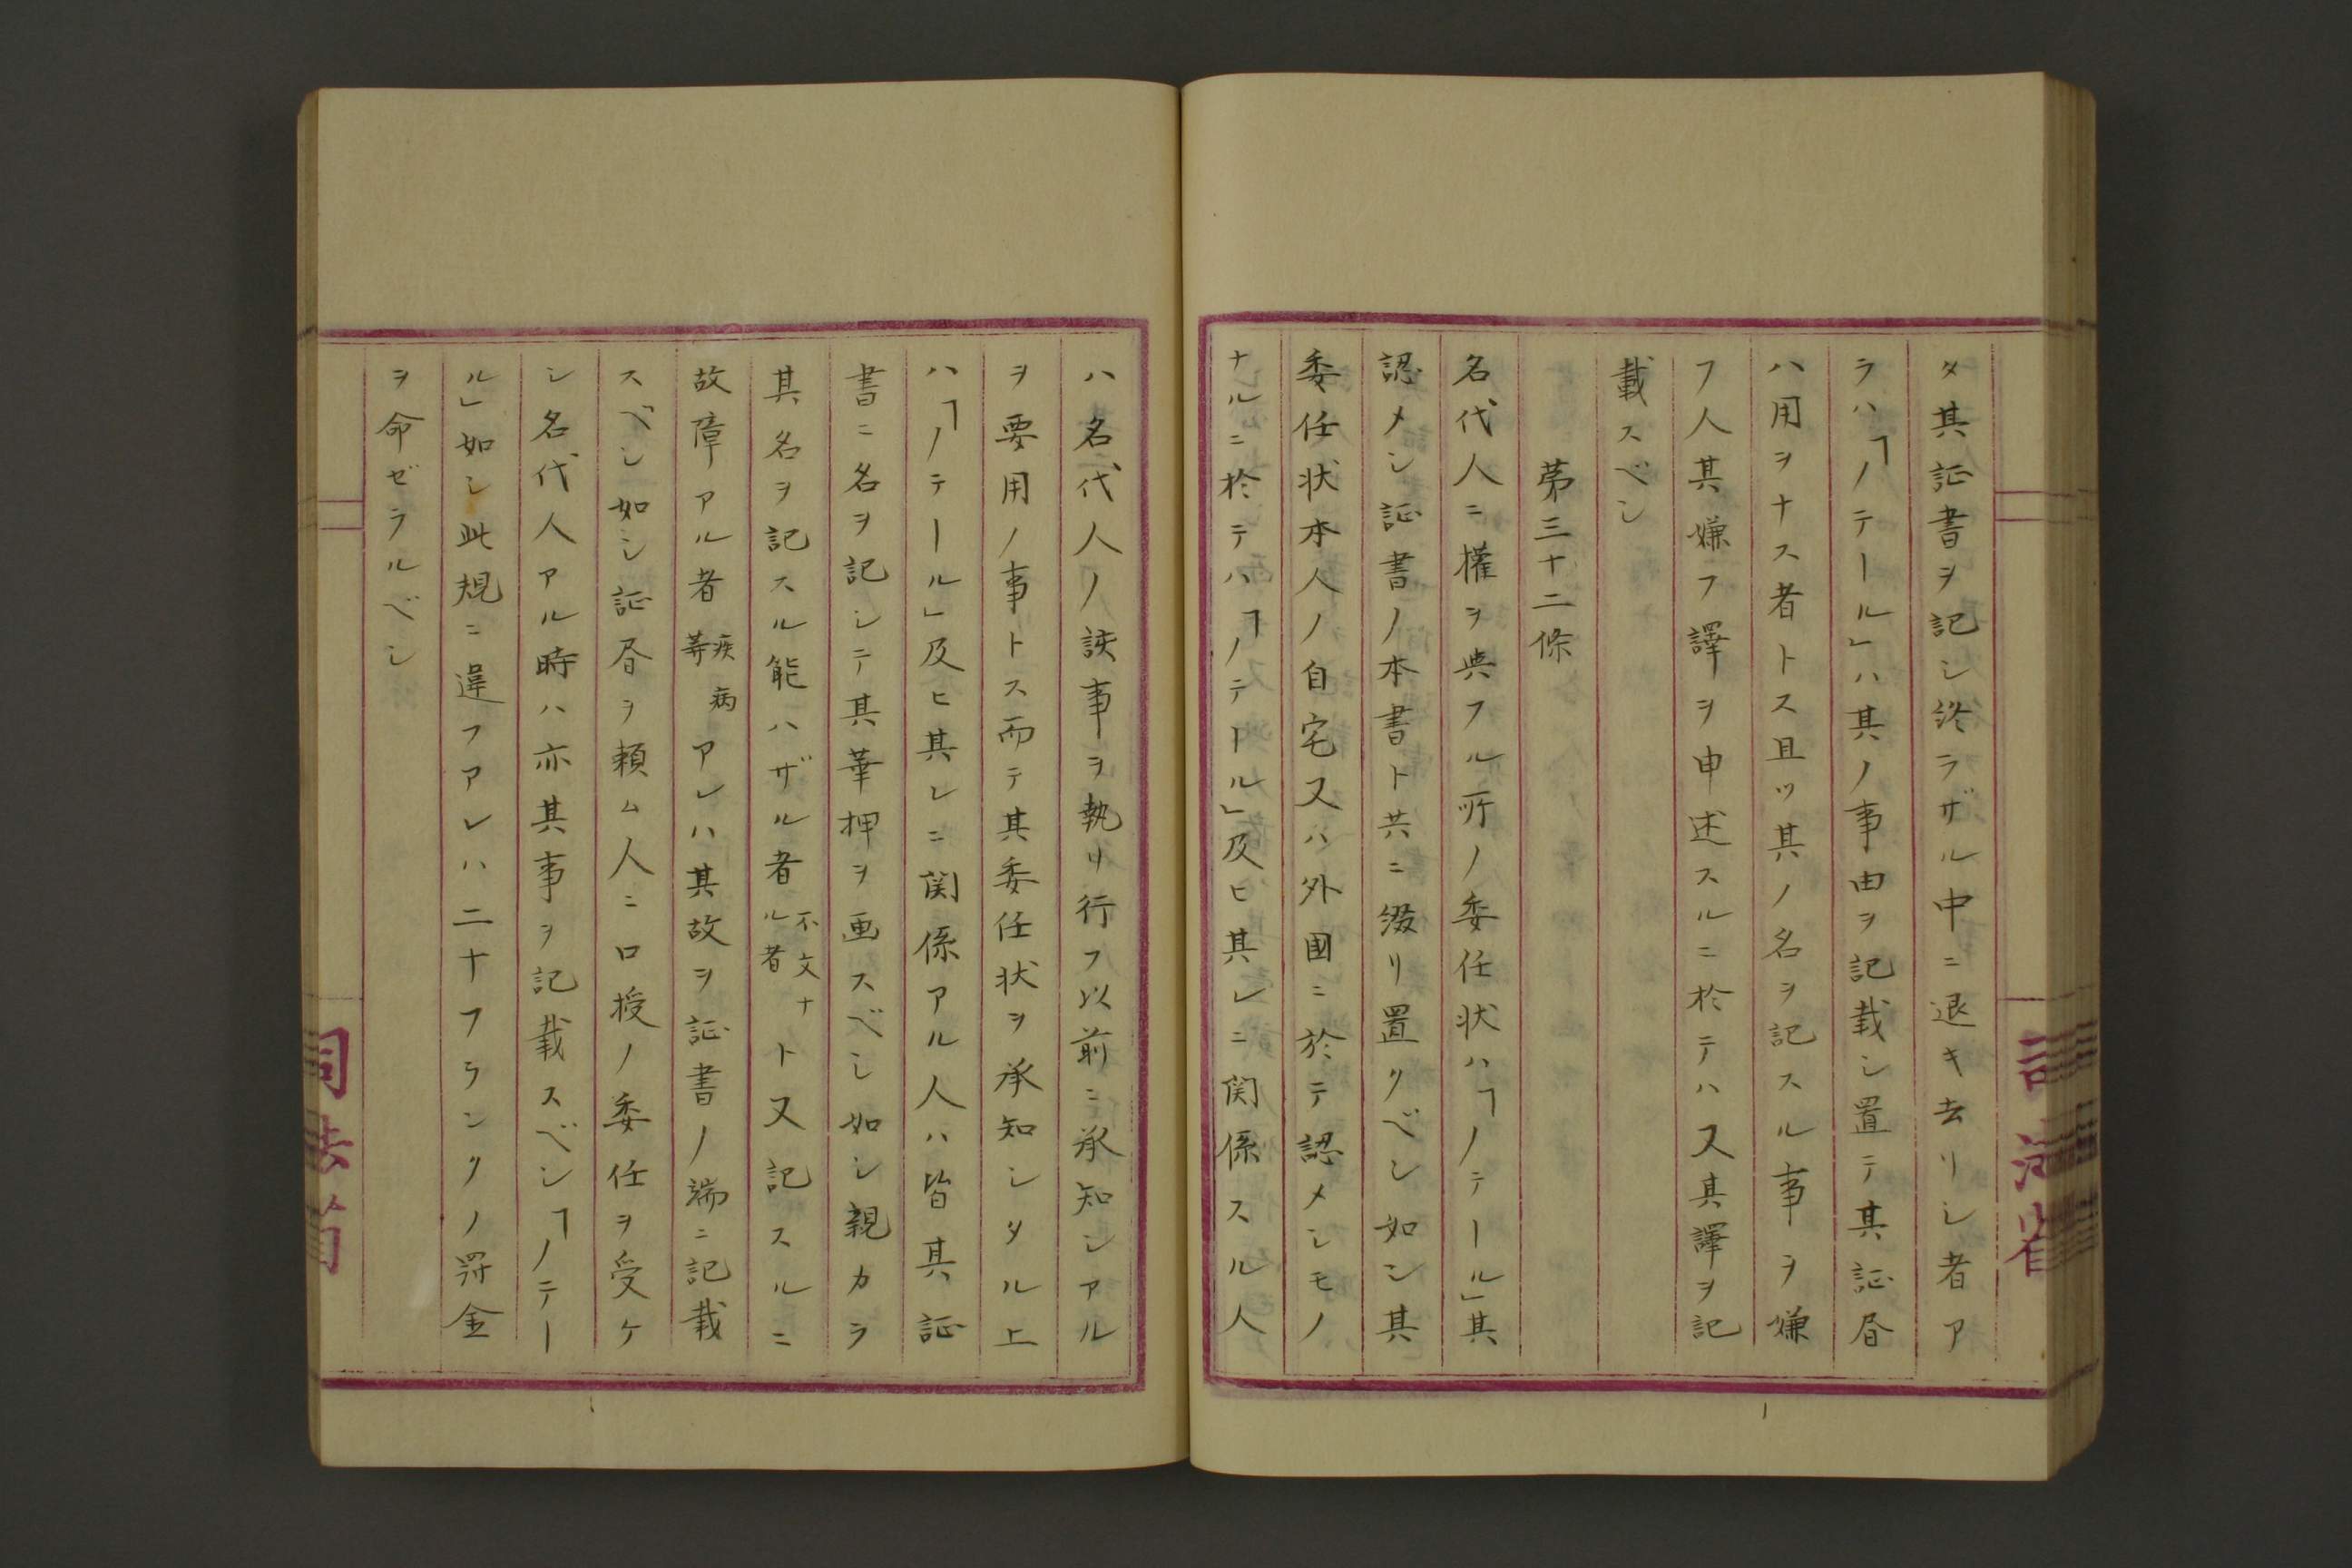 タ其証書ヲ記シ終ラザル中ニ退キ去リシ者ア
ラハ「ノテール」ハ其ノ事由ヲ記載シ置テ其証昏
ハ用ヲナス者トス且ツ其ノ名ヲ記スル事ヲ嫌
フ人其嫌フ譯ヲ申述スルニ於テハ又其譯ヲ記
載スベシ
第三十二條
名代人ニ權ヲ與フル所ノ委任状ハ「ノテール」其
認メシ証書ノ本書ト共ニ綴リ置クベシ如シ其
委任状本人ノ自宅又ハ外國ニ於テ認メシモノ
ナルニ於テハ「ノテール」及ヒ其レニ関係スル人
ハ名代人ノ該事ヲ執リ行フ以前ニ承知シアル
ヲ要用ノ事トス而テ其委任状ヲ承知シタル上
ハ「ノテール」及ヒ其レニ関係アル人ハ皆其証
書ニ名ヲ記シテ其華押ヲ画スベシ如シ親カラ
其名ヲ記スル能ハザル者不文ナル者ト又記スルニ
故障アル者疾病等アレハ其故ヲ証書ノ端ニ記載
スベシ如シ証昏ヲ頼ム人ニ口授ノ委任ヲ受ケ
シ名代人アル時ハ亦其事ヲ記載スベシ「ノテー
ル」如シ此規ニ違フアレハ二十フランクノ罸金
ヲ命ゼラルベシ
司法省